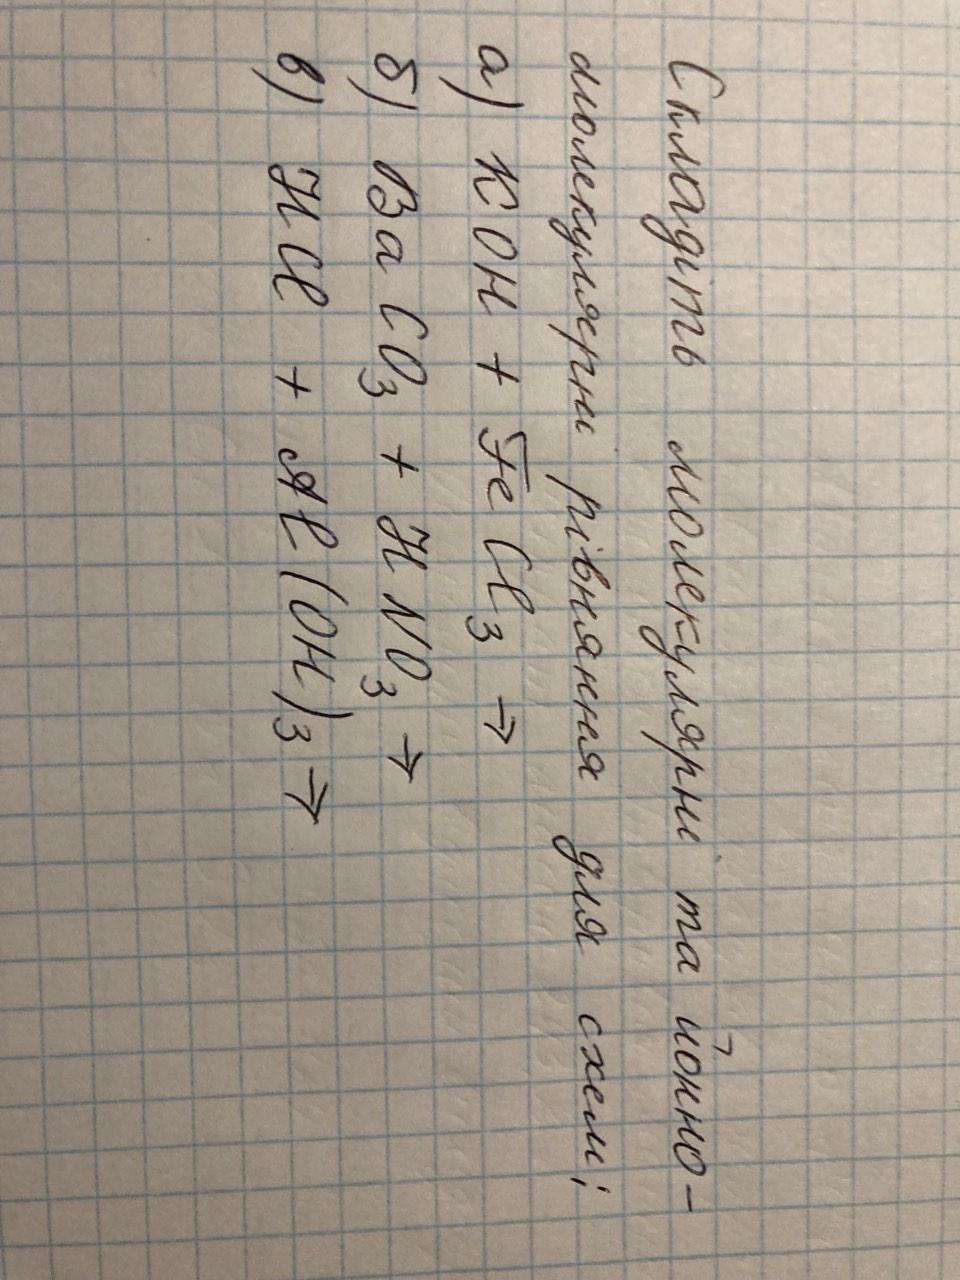 Складіть молекулярні та йонно-
молекулярні рівняння для схем:
а) KOH + FeCl₃ →
б) BaCO₃ + HNO₃ →
в) HCl + Al(OH)₃ →